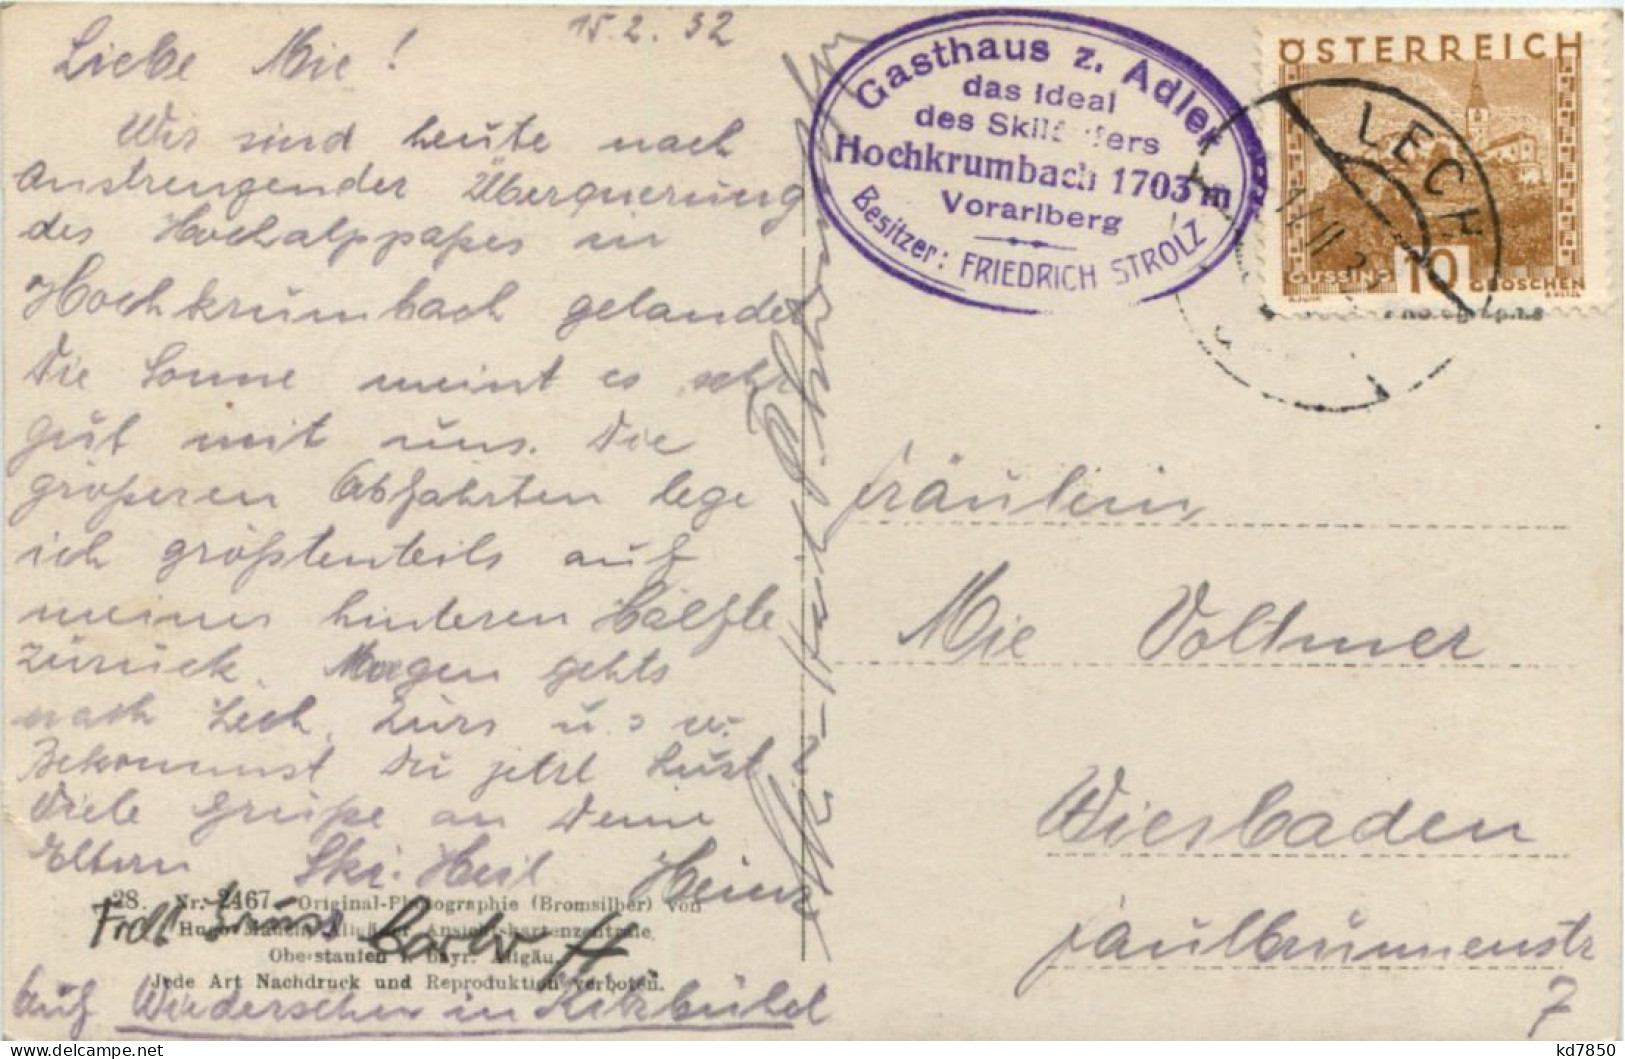 15.2.32
Liebe Mie!
Wir sind heute nach
anstrengender Überquerung
des Hochalppaßes in
Hochkrumbach gelandet
Die Sonne meint es sehr
gut mit uns. Die
größeren Abfahrten lege
ich größtenteils auf
meiner hinteren Hälfte
zurück. Morgen gehts
nach Lech, Zürs u.s.w.
Bekommst Du jetzt Lust?
Viele Grüße an Deine
Eltern Ski-Heil Heinz
Frdl Gruss
28. Nr. 2467. Original-Photographie (Bromsilber) von
Ansichtskartenzentrale
Oberstaufen i. bayr. Allgäu.
Jede Art Nachdruck und Reproduktion verboten.
Auf Wiedersehen in Kitzbühel
Gasthaus z. Adler
das Ideal
des Skiläufers
Hochkrumbach 1703 m
Vorarlberg
Besitzer: FRIEDRICH STROLZ
ÖSTERREICH
GÜSSING 10 GROSCHEN
LECH
Fräulein
Mie Voltmer
Wiesbaden
Paulbrunnenstr
7
kd7850